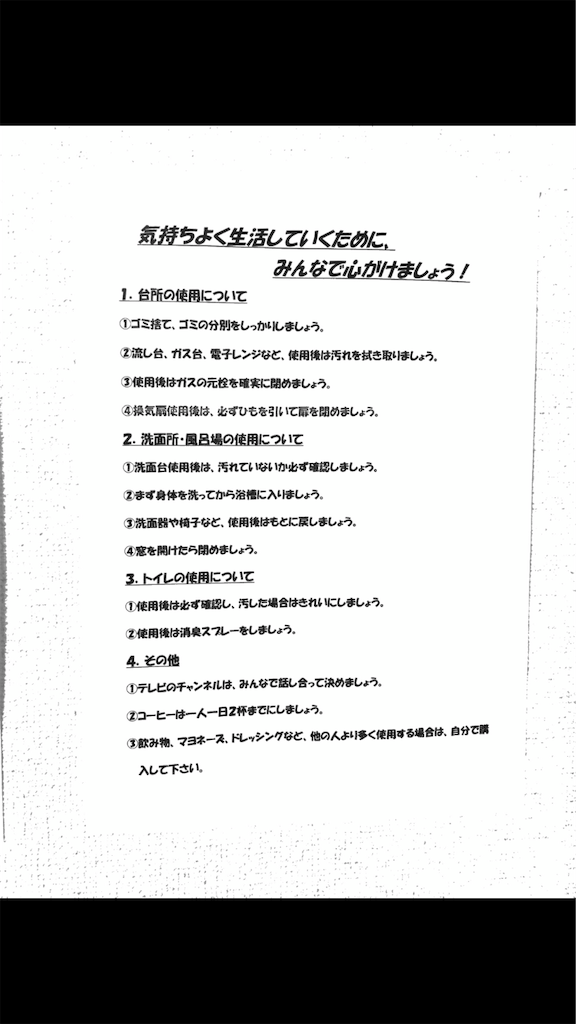 気持ちよく生活していくために、
みんなで心がけましょう！
1. 台所の使用について
①ゴミ捨て、ゴミの分別をしっかりしましょう。
②流し台、ガス台、電子レンジなど、使用後は汚れを拭き取りましょう。
③使用後はガスの元栓を確実に閉めましょう。
④換気扇使用後は、必ずひもを引いて扉を閉めましょう。
2. 洗面所・風呂場の使用について
①洗面台使用後は、汚れていないか必ず確認しましょう。
②まず身体を洗ってから浴槽に入りましょう。
③洗面器や椅子など、使用後はもとに戻しましょう。
④窓を開けたら閉めましょう。
3. トイレの使用について
①使用後は必ず確認し、汚した場合はきれいにしましょう。
②使用後は消臭スプレーをしましょう。
4. その他
①テレビのチャンネルは、みんなで話し合って決めましょう。
②コーヒーは一人一日2杯までにしましょう。
③飲み物、マヨネーズ、ドレッシングなど、他の人より多く使用する場合は、自分で購
入して下さい。